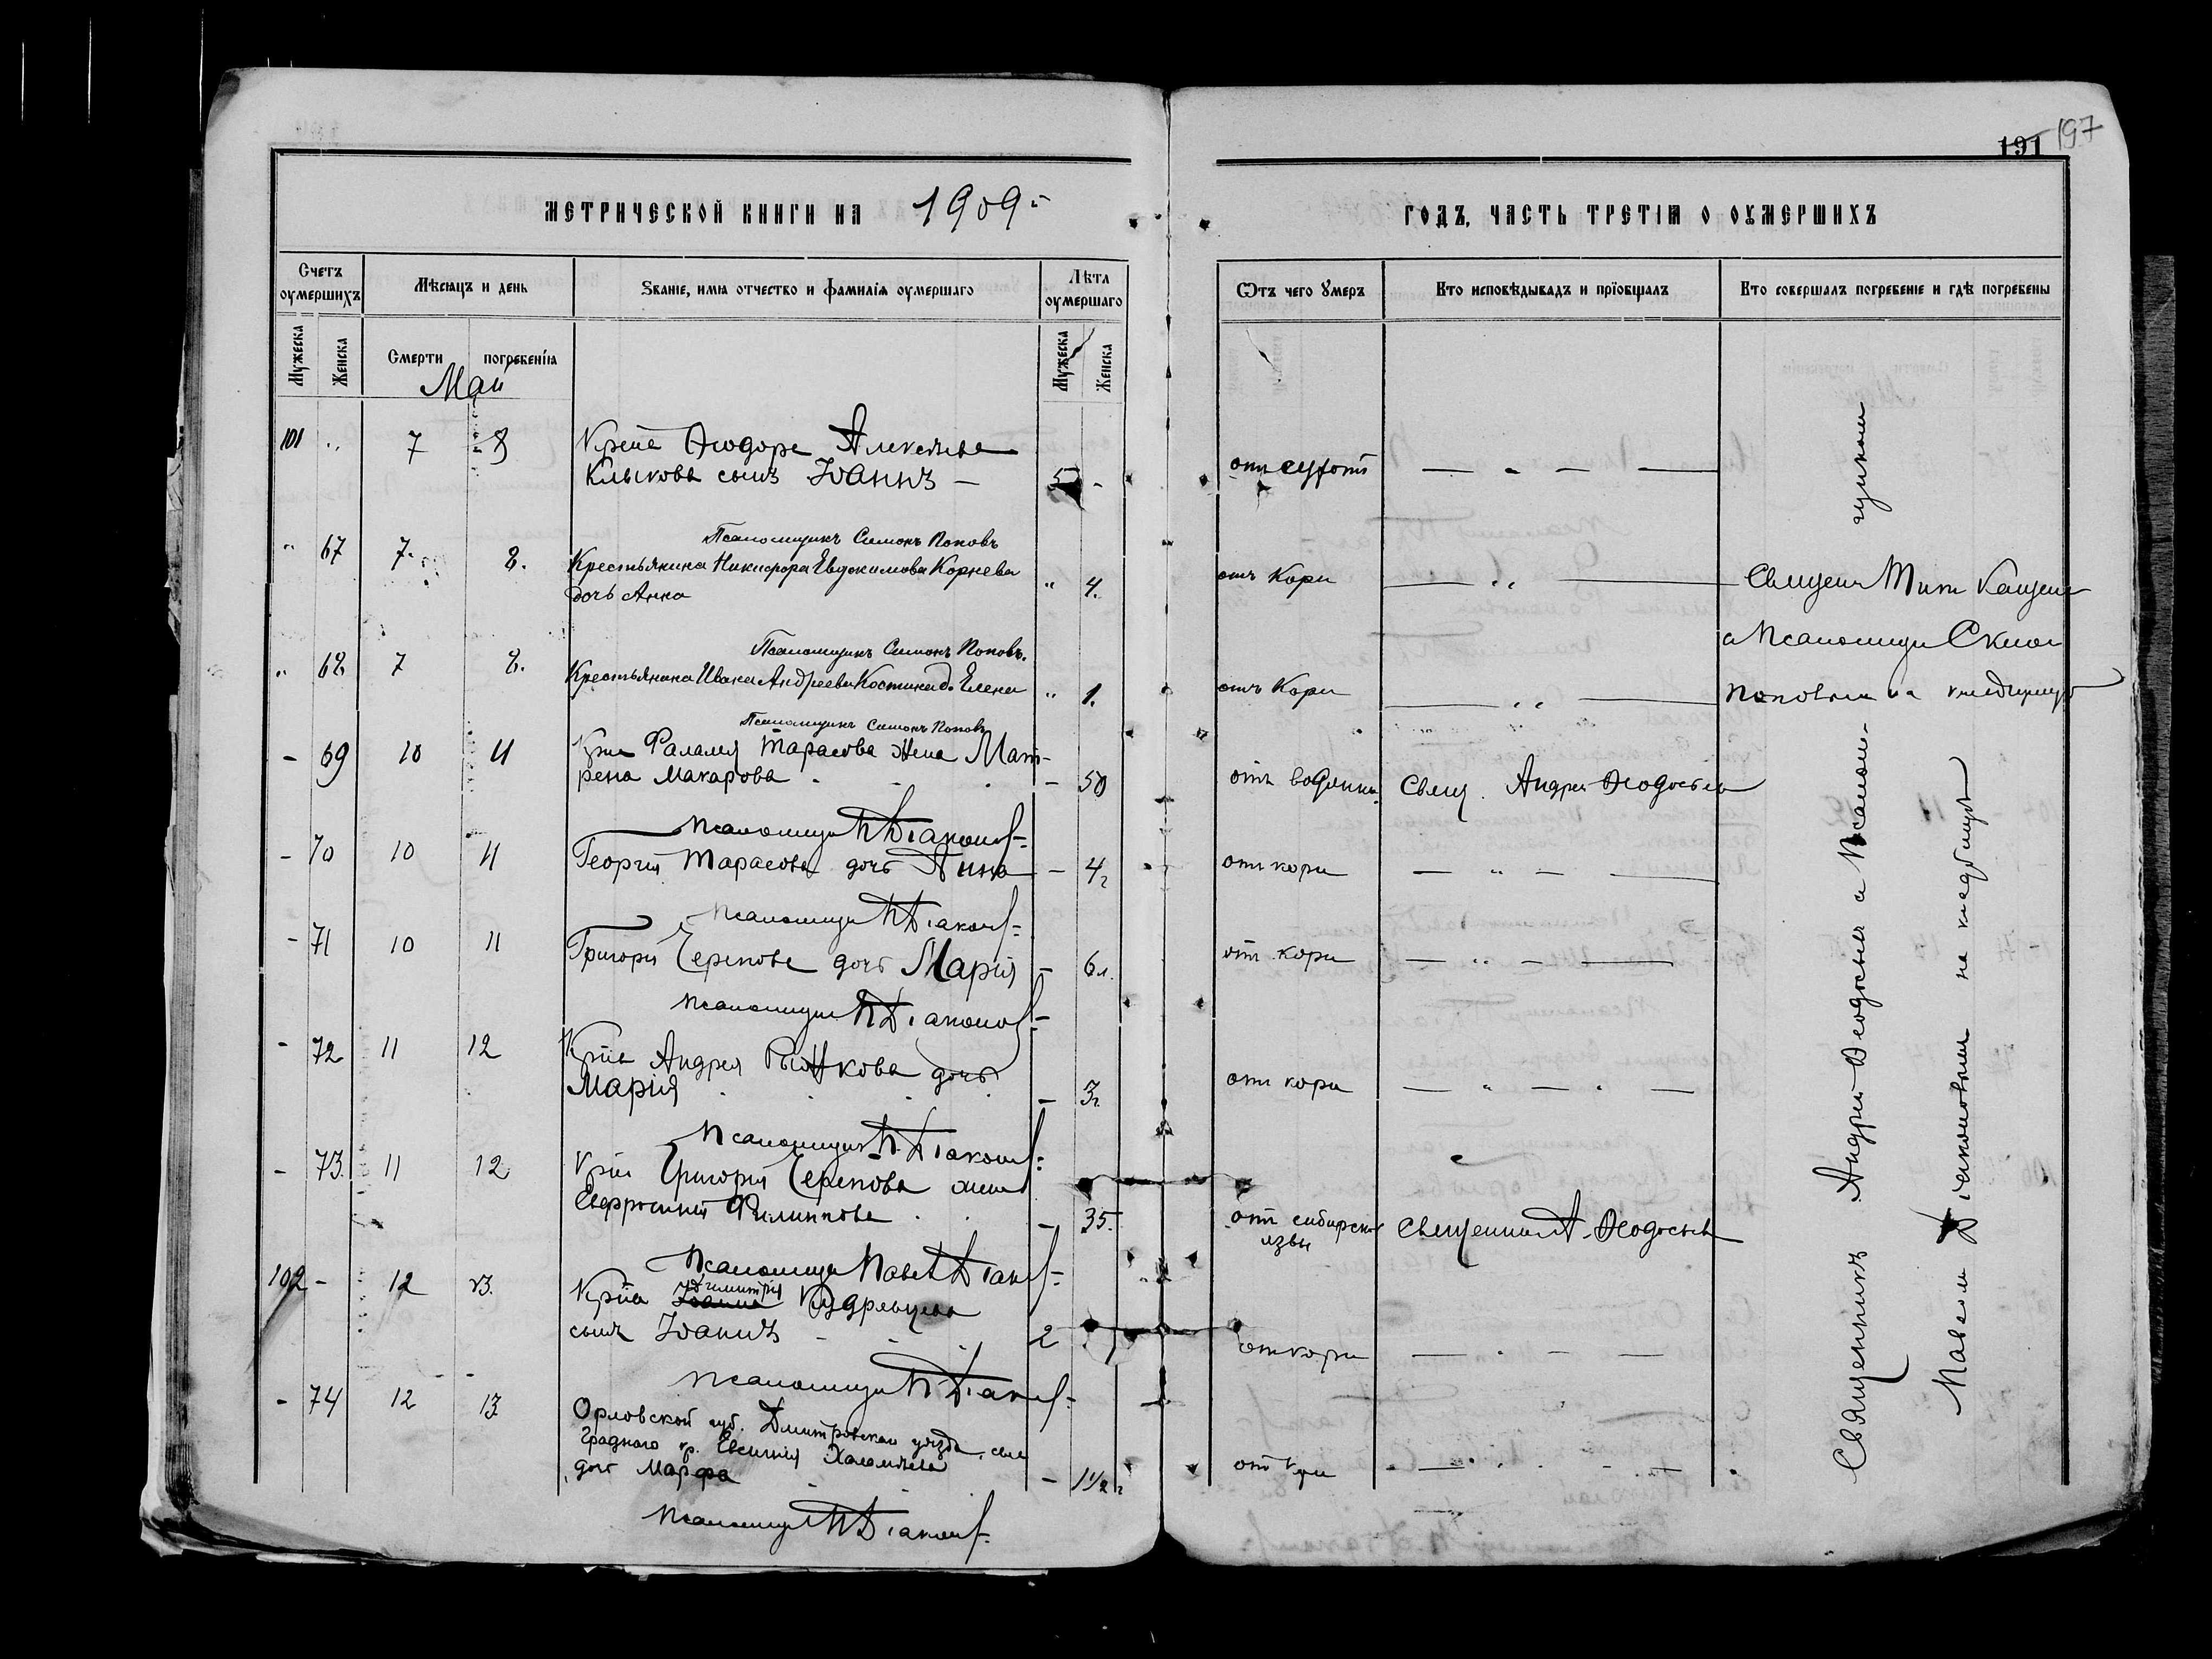 197
191
МЕТРИЧЕСКОЙ КНИГИ НА 1909
ГОДЪ, ЧАСТЬ ТРЕТІЯ О ОУМЕРШИХЪ
Счетъ оумершихъ
Мѣсяцъ и день
Званіе, имя отчество и фамилія оумершаго
Лѣта оумершаго
Ѿтъ чего умеръ
Кто исповѣдывалъ и пріобщалъ
Кто совершалъ погребеніе и гдѣ погребены
Мужеска
Женска
Смерти
погребенія
Мужеска
Женска
Май
101 " 7 8 Крт҃на Ѳеодора Алексѣева
Клыкова сынъ Іоаннъ — 5 -
Псаломщикъ Симонъ Поповъ
" 67 7. 8. Крестьянина Никифора Евдокимова Корнева
дочь Анна " 4. отъ Кори — " —
Псаломщикъ Симонъ Поповъ.
" 68 7 8. Крестьянина Ивана Андреева Костина д. Елена " 1. отъ Кори — " —
Псаломщикъ Симонъ Поповъ
- 69 10 11 Тарасова жена Мат-
рена Макарова - 50 отъ водянки Свящ. Андрей Ѳеодосьевъ
Псаломщикъ П Діаконовъ
- 70 10 11 Георгія Тарасова дочь Анна - 4 г отъ кори — " — —
Псаломщикъ П Діаконовъ
- 71 10 11 Григорія Черепова дочь Марія - 6 л. отъ кори — " — —
Псаломщикъ П Діаконовъ
- 72 11 12 Андрея дочь
Марія - 3 г. отъ кори — " — —
Псаломщикъ П. Діаконовъ
- 73. 11 12 Григорія Черепова жена
Евфросинія Филиппова - 35. отъ сибирской
язвы Священникъ А. Ѳеодосьевъ
Псаломщикъ Павел Діаконовъ
Димитрія
102 - 12 13. Іоанна Кудрявцева
сынъ Іоаннъ 2 отъ кори — — —
Псаломщикъ П. Діаконовъ
- 74 12 13 Орловской губ. Дмитровскаго уѣзда, села
Граднаго кр. Евсигнія
дочь Марфа - 1 1/2 г отъ кори
Псаломщикъ П Діаконовъ
Священ Титъ
и Псаломщи
Поповымъ на кладбищѣ
Священникъ Андрей Ѳеодосьевъ и Псалом-
щикомъ
Павелъ Діаконовымъ на кладбищѣ